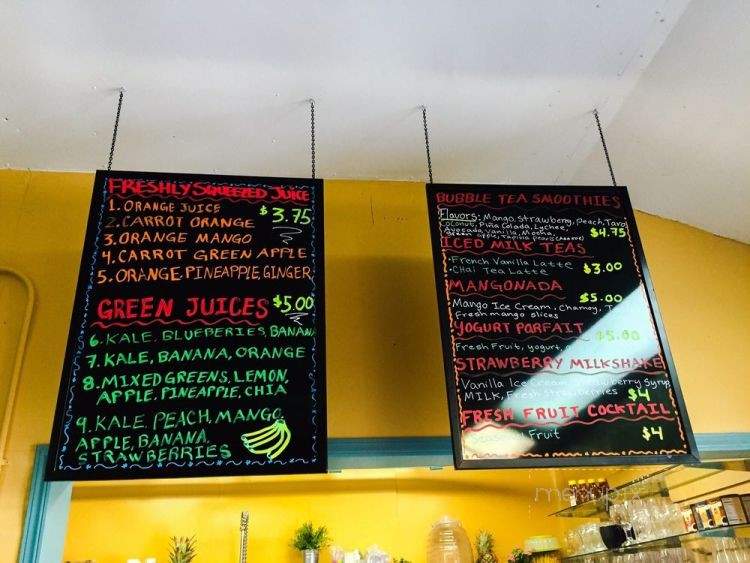 FRESHLY SQUEEZED JUICE
1. ORANGE JUICE $3.75
2. CARROT ORANGE
3. ORANGE MANGO
4. CARROT GREEN APPLE
5. ORANGE, PINEAPPLE, GINGER
GREEN JUICES $5.00
6. KALE, BLUEPERIES, BANANA
7. KALE, BANANA, ORANGE
8. MIXED GREENS, LEMON,
APPLE, PINEAPPLE, CHIA
9. KALE, PEACH, MANGO,
APPLE, BANANA,
STRAWBERRIES
BUBBLE TEA SMOOTHIES
Flavors: Mango, Strawberry, Peach, Taro
Coconut, Piña Colada, Lychee,
Avocado, Vanilla, Mocha, $4.75
Green Apple, Tapioca pearls
ICED MILK TEAS
French Vanilla Latte
Chai Tea Latte $3.00
MANGONADA $5.00
Mango Ice Cream, Chamoy,
Fresh mango slices
YOGURT PARFAIT $5.00
Fresh Fruit, yogurt,
STRAWBERRY MILKSHAKE
Vanilla Ice Cream, Strawberry Syrup
MILK, Fresh Strawberries $4
FRESH FRUIT COCKTAIL
Seasonal Fruit $4
menupix